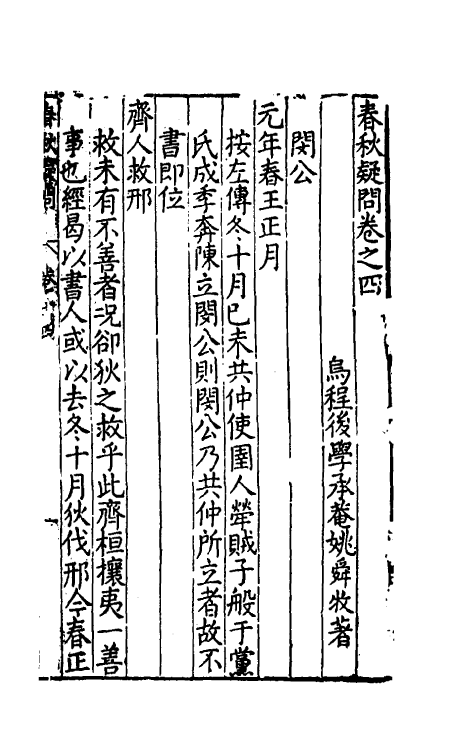 春秋疑問卷之四
烏程後學承菴姚舜牧著
閔公
元年春王正月
按左傳冬十月己未共仲使圉人犖賊子般于黨
氏成季奔陳立閔公則閔公乃共仲所立者故不
書即位
齊人救邢
救未有不善者况卻狄之救乎此齊桓攘夷一善
事也經曷以書人或以去冬十月狄伐邢今春正